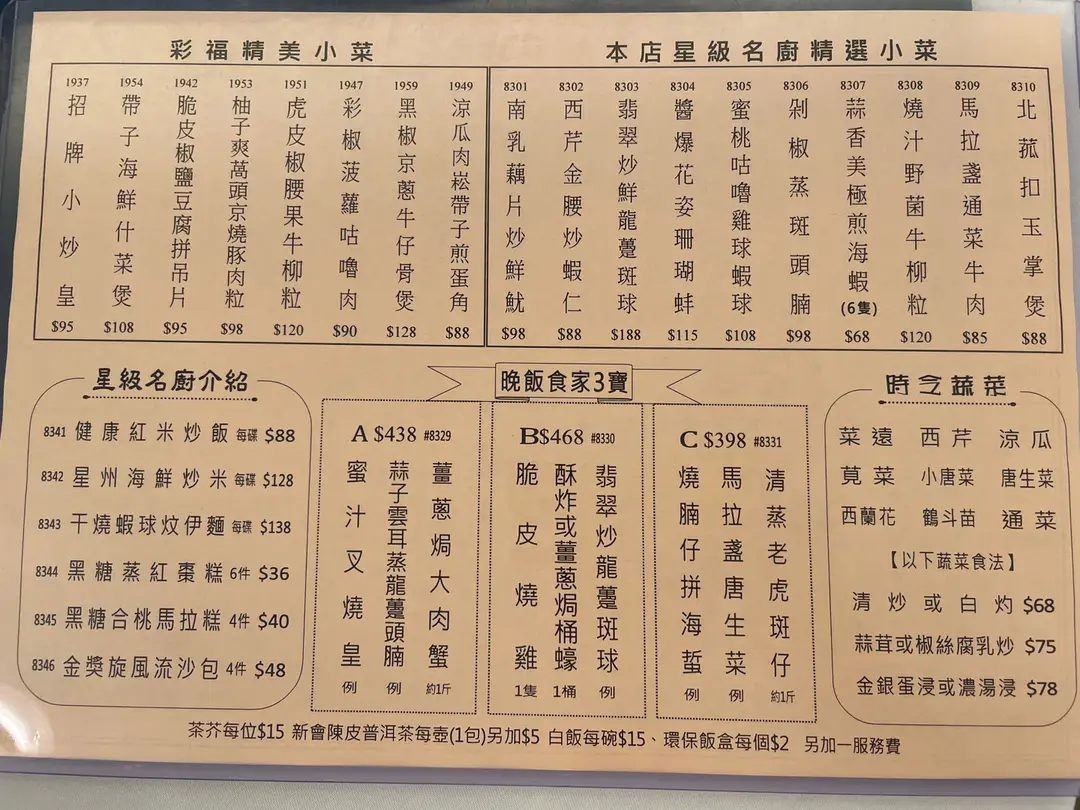 彩福精美小菜
1937 招牌小炒皇 $95
1954 帶子海鮮什菜煲 $108
1942 脆皮椒鹽豆腐拼吊片 $95
1953 柚子爽萵頭京燒豚肉粒 $98
1951 虎皮椒腰果牛柳粒 $120
1947 彩椒菠蘿咕嚕肉 $90
1959 黑椒京蔥牛仔骨煲 $128
1949 涼瓜肉崧帶子煎蛋角 $88
本店星級名廚精選小菜
8301 南乳藕片炒鮮魷 $98
8302 西芹金腰炒蝦仁 $88
8303 翡翠炒鮮龍躉斑球 $188
8304 醬爆花姿珊瑚蚌 $115
8305 蜜桃咕嚕雞球蝦球 $108
8306 剁椒蒸斑頭腩 $98
8307 蒜香美極煎海蝦(6隻) $68
8308 燒汁野菌牛柳粒 $120
8309 馬拉盞通菜牛肉 $85
8310 北菰扣玉掌煲 $88
星級名廚介紹
8341 健康紅米炒飯 每碟 $88
8342 星州海鮮炒米 每碟 $128
8343 干燒蝦球炆伊麵 每碟 $138
8344 黑糖蒸紅棗糕 6件 $36
8345 黑糖合桃馬拉糕 4件 $40
8346 金獎旋風流沙包 4件 $48
晚飯食家3寶
A $438 #8329
薑蔥焗大肉蟹 約1斤
蒜子雲耳蒸龍躉頭腩 例
蜜汁叉燒皇 例
B$468 #8330
翡翠炒龍躉斑球 例
酥炸或薑蔥焗桶蠔 1桶
脆皮燒雞 1隻
C $398 #8331
清蒸老虎斑仔 約1斤
馬拉盞唐生菜 例
燒腩仔拼海蜇 例
時令蔬菜
菜遠 西芹 涼瓜
莧菜 小唐菜 唐生菜
西蘭花 鶴斗苗 通菜
【以下蔬菜食法】
清炒或白灼 $68
蒜茸或椒絲腐乳炒 $75
金銀蛋浸或濃湯浸 $78
茶芥每位$15 新會陳皮普洱茶每壺(1包)另加$5 白飯每碗$15、環保飯盒每個$2 另加一服務費